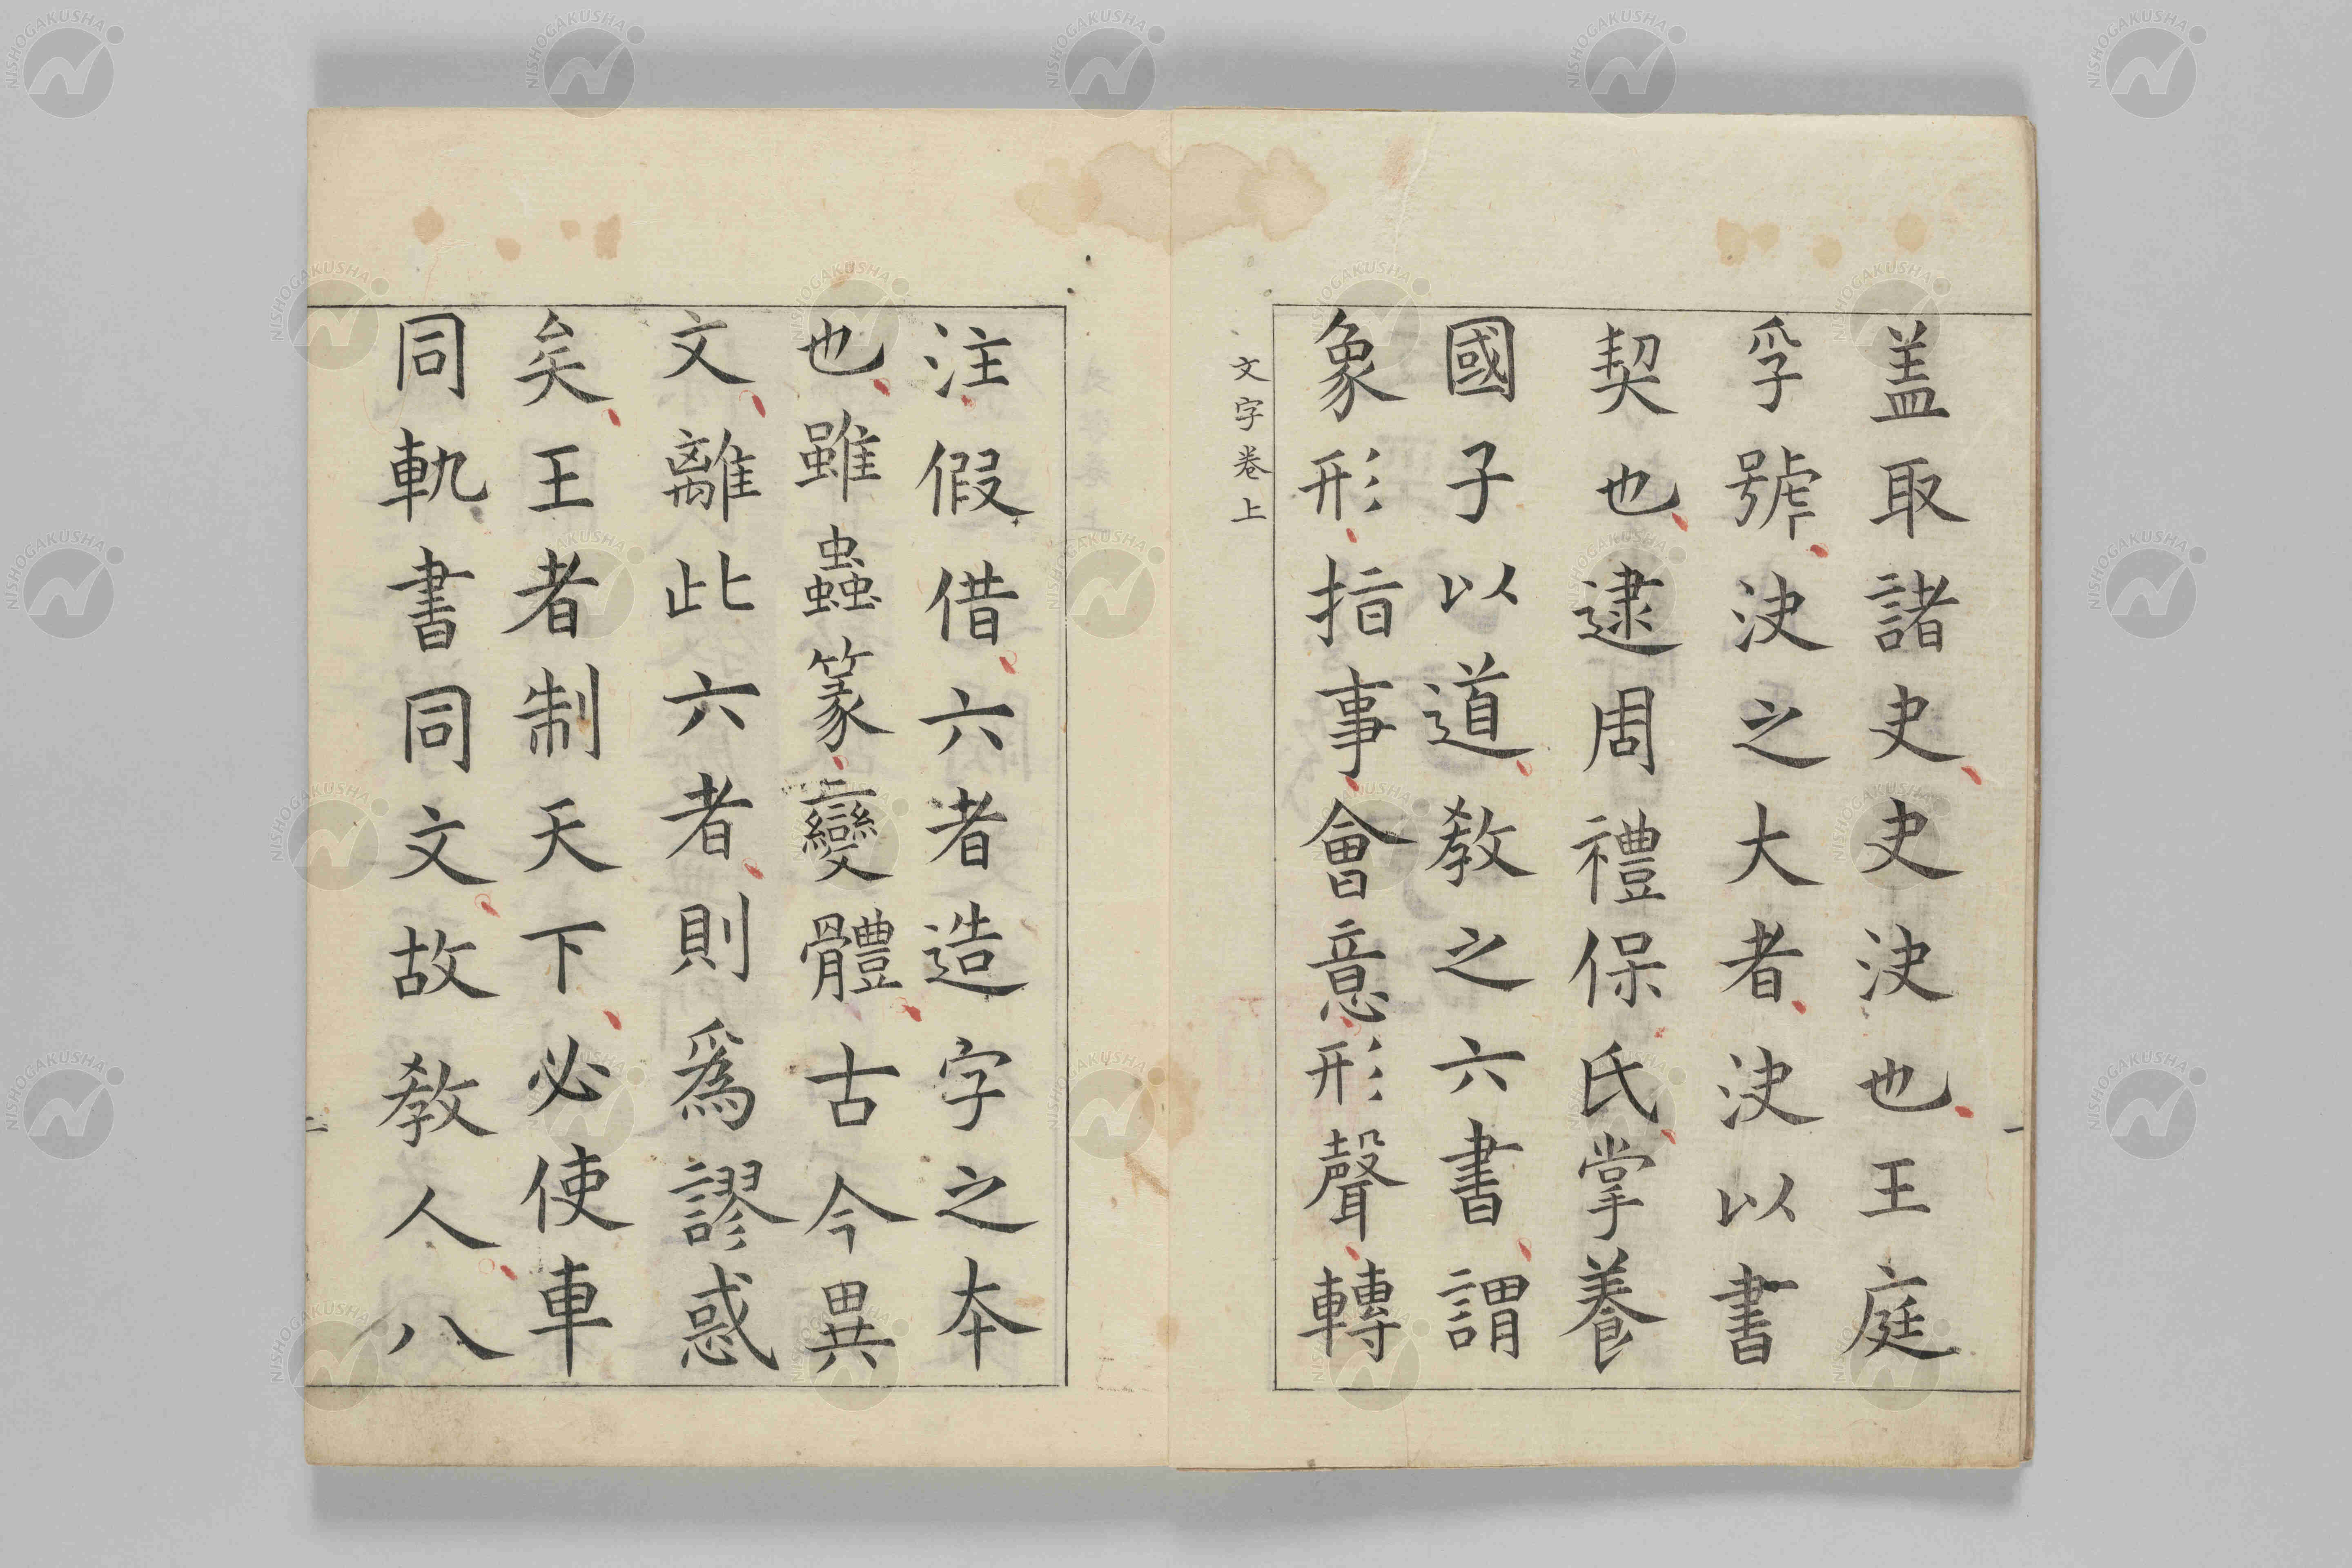 盖取諸夬夬決也王庭
孚號決之大者決以書
契也逮周禮保氏掌養
國子以道教之六書謂
象形指事會意形聲轉
文字卷上
注假借六者造字之本
也雖蟲篆變體古今異
文離此六者則爲謬惑
矣王者制天下必使車
同軌書同文故教人八
NISHOGAKUSHA